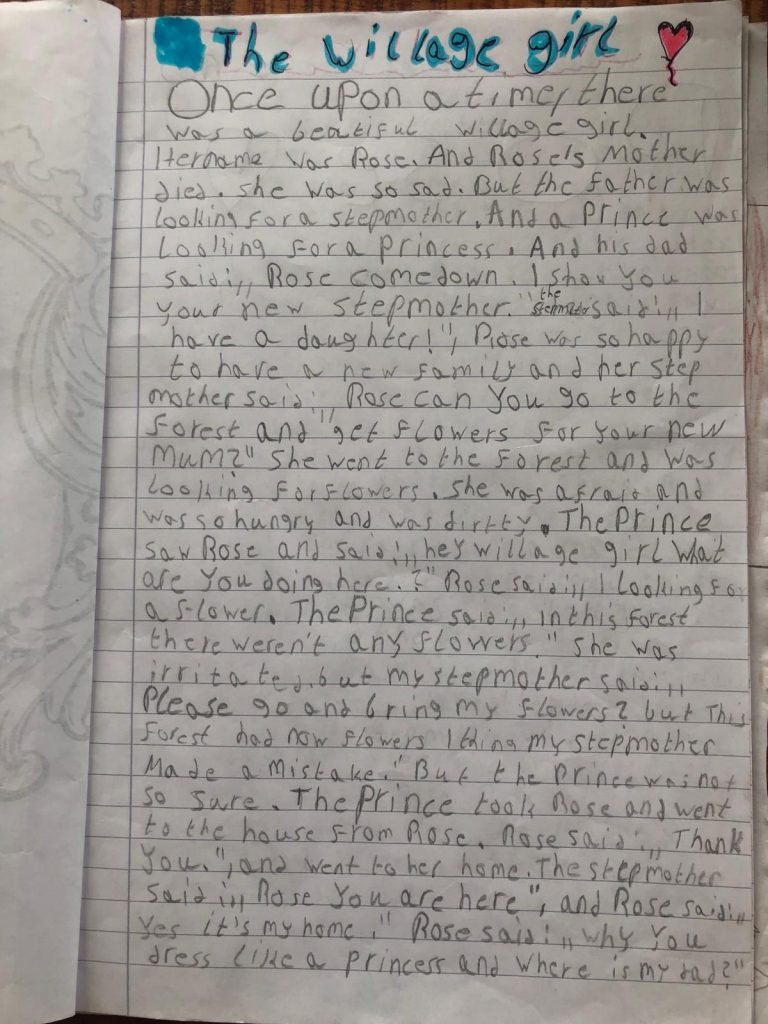 The willage girl
Once upon a time, there
was a beatiful willage girl.
Her name was Rose. And Rose's Mother
died. she was so sad. But the father was
looking for a stepmother. And a Prince was
Looking for a princess. And his dad
said:,, Rose come down. I show you
your new stepmother." the stepmother said:,, I
have a daughter!", Rose was so happy
to have a new family and her step
mother said:,, Rose can you go to the
forest and get flowers for your new
Mum?" She went to the forest and was
Looking for flowers. she was afraid and
was so hungry and was dirtty. The Prince
saw Rose and said:,, hey willage girl what
are you doing here.?" Rose said:,, I looking for
a flower. The Prince said:,, in this forest
there weren't any flowers." she was
irritated. but my stepmother said:,,
Please go and bring my flowers? but This
forest had now flowers I thing my stepmother
Made a mistake." But the prince was not
so sure. The Prince took Rose and went
to the house from Rose. Rose said:,, Thank
you.", and went to her home. The stepmother
said:,, Rose you are here", and Rose said:,,
Yes it's my home." Rose said:,, why you
dress like a princess and where is my dad?"